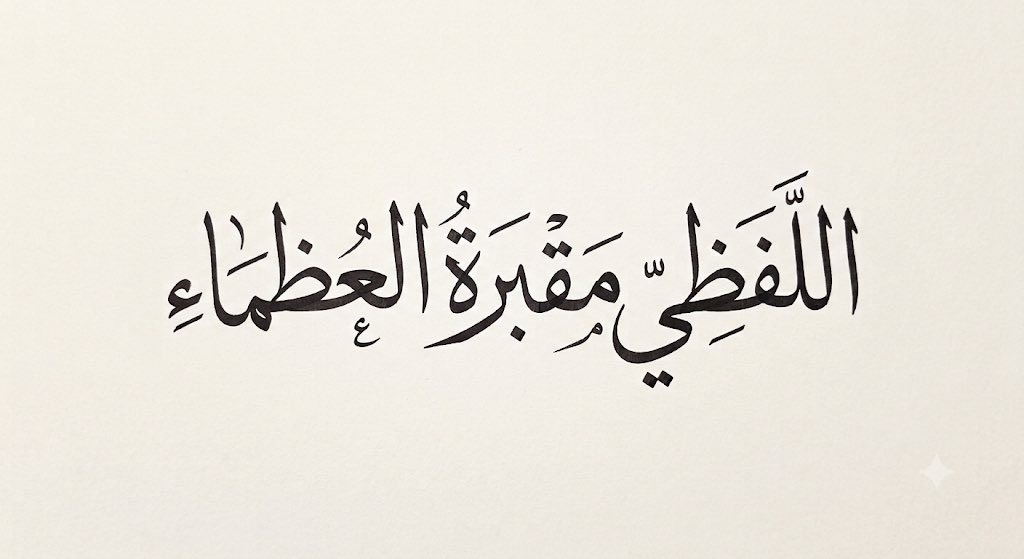 اللَّفَظِيّ مَقْبَرَةُ العُظمَاءِ